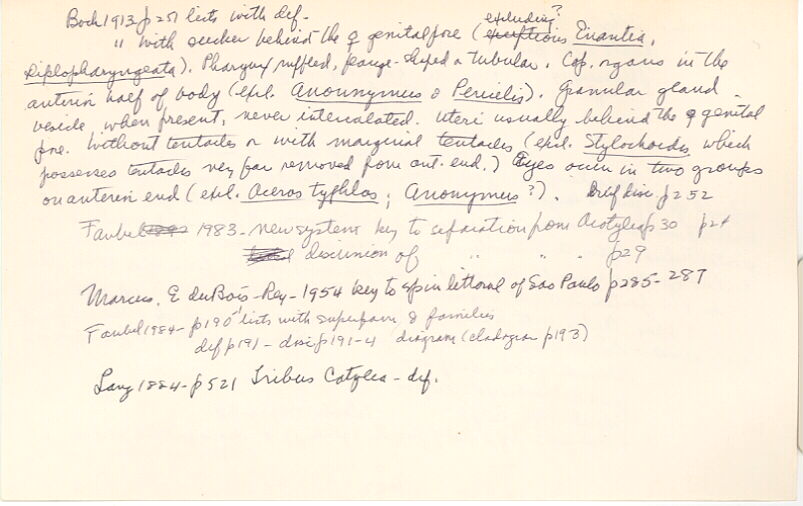 Bock 1913 p251 lists with def.
excluding?
" with sucker behind the ♀ genital pore (exceptions Enantia,
Diplopharyngeata). Pharynx ruffled, gauge-shaped or tubular. Cop. organs in the
anterior half of body (excl. Anonymus & Pericelis). Granular gland
vesicle, when present, never intercalated. Uteri usually behind the ♀ genital
pore. Without tentacles or with marginal tentacles (excl. Stylochoides which
possesses tentacles very far removed from ant. end.) Eyes occur in two groups
on anterior end (excl. Aceros typhlos; Anonymus?). Brief disc p252
Faubel 1983 - new system key to separation from Acotylea p30 p24
discussion of " " " p29
Marcus, E du Bois-Rey - 1954 key to spp in littoral of Sao Paulo p285-287
Faubel 1984 - p190 lists with superfam. & families
def p191 - disc p191-4 diagram (cladogram p193)
Lang 1884 - p521 Tribus Cotylea - def.